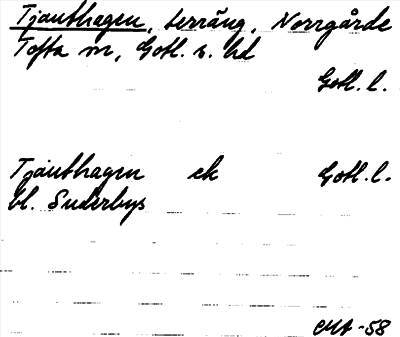 Tjauthagen, terräng, Norrgårde
Tofta sn, Gotl. s. hd
Gotl. l.
Tjauthagen ek Gotl. l.
bl. Suderbys
CMA -58